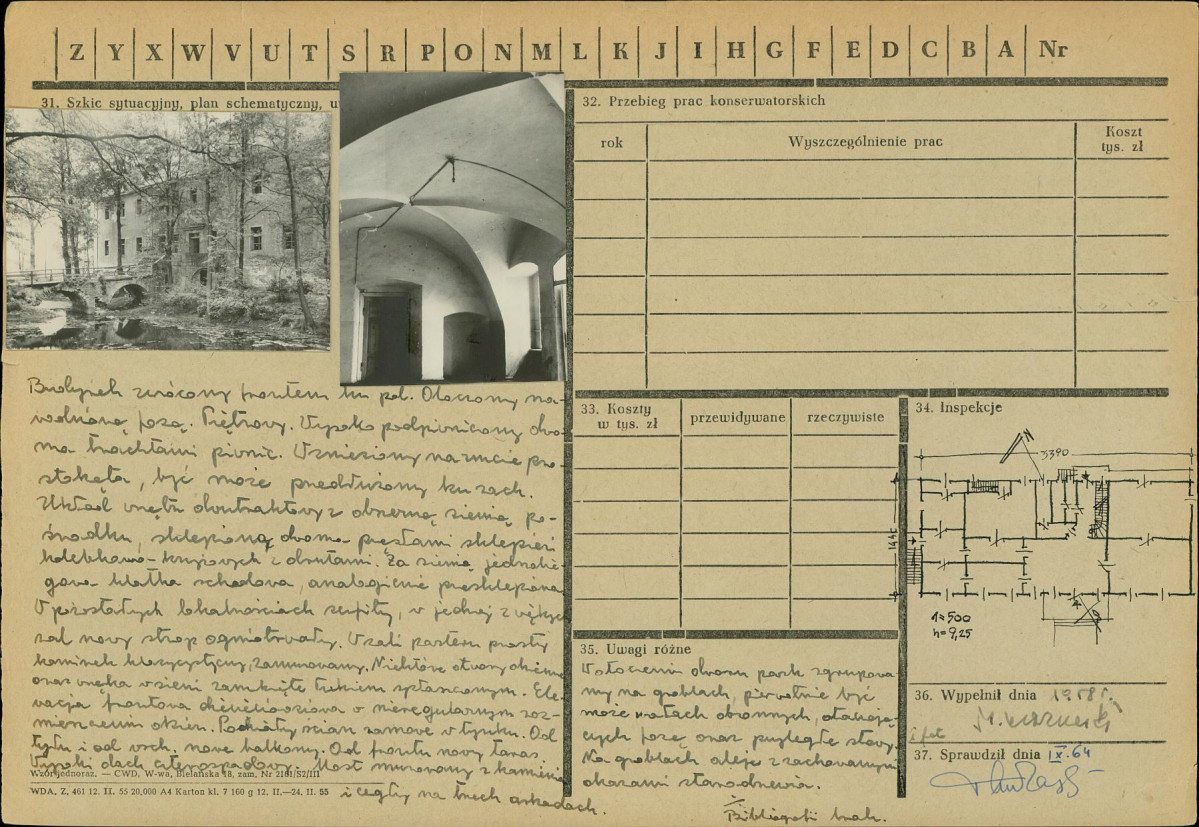 Z Y X W V U T S R P O N M L K J I H G F E D C B A Nr
31. Szkic sytuacyjny, plan schematyczny, u
Budynek zwrócony frontem ku pd. Otoczony na-
wodnioną fosą. Piętrowy. Wysoko podpiwniczony dwo-
ma traktami piwnic. Wzniesiony na rzucie pro-
stokąta, być może przedłużony ku zach.
Układ wnętrz dwutraktowy z obszerną sienią po-
środku, sklepioną dwoma przęsłami sklepień
kolebkowo-krzyżowych z gurtami. Za sienią jednobie-
gowa klatka schodowa, analogicznie przesklepiona
W pozostałych lokalnościach sufity, w jednej z większych
sal nowy strop ogniotrwały. W sali parteru prosty
kominek klasycystyczny, zamurowany. Niektóre otwory okienne
oraz wnęka w sieni zamknięte łukiem spłaszczonym. Ele-
wacja frontowa dziewięcioosiowa o nieregularnym roz-
mieszczeniu okien. ścian zamowe w tynku. Od
tyłu i od wsch. nowe balkony. Od frontu nowy taras.
Wysoki dach czterospadowy. Most murowany z kamienia
i cegły na trzech arkadach.
Wzór jednoraz. — CWD, W-wa, Bielańska 18, zam. Nr 2161/52/III
WDA, Z, 461 12. II. 55 20,000 A4 Karton kl. 7 160 g 12. II.—24. II. 55
32. Przebieg prac konserwatorskich
rok
Wyszczególnienie prac
Koszt
tys. zł
33. Koszty
w tys. zł
przewidywane
rzeczywiste
34. Inspekcje
N
5390
1445
1:500
h=9,25
35. Uwagi różne
W otoczeniu dworu park zgrupowa-
ny na groblach, pierwotnie być
może wałach obronnych, otaczają-
cych fosę oraz przyległe stawy.
Na groblach aleje z zachowanymi
okazami starodrzewia.
Bibliografii brak.
36. Wypełnił dnia 1958 r.
i fot
37. Sprawdził dnia IX.64